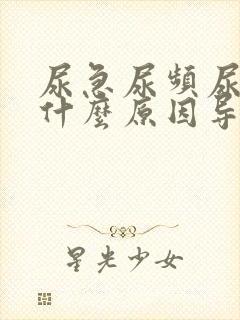 尿急尿頻尿
什麼原因导
星光少女